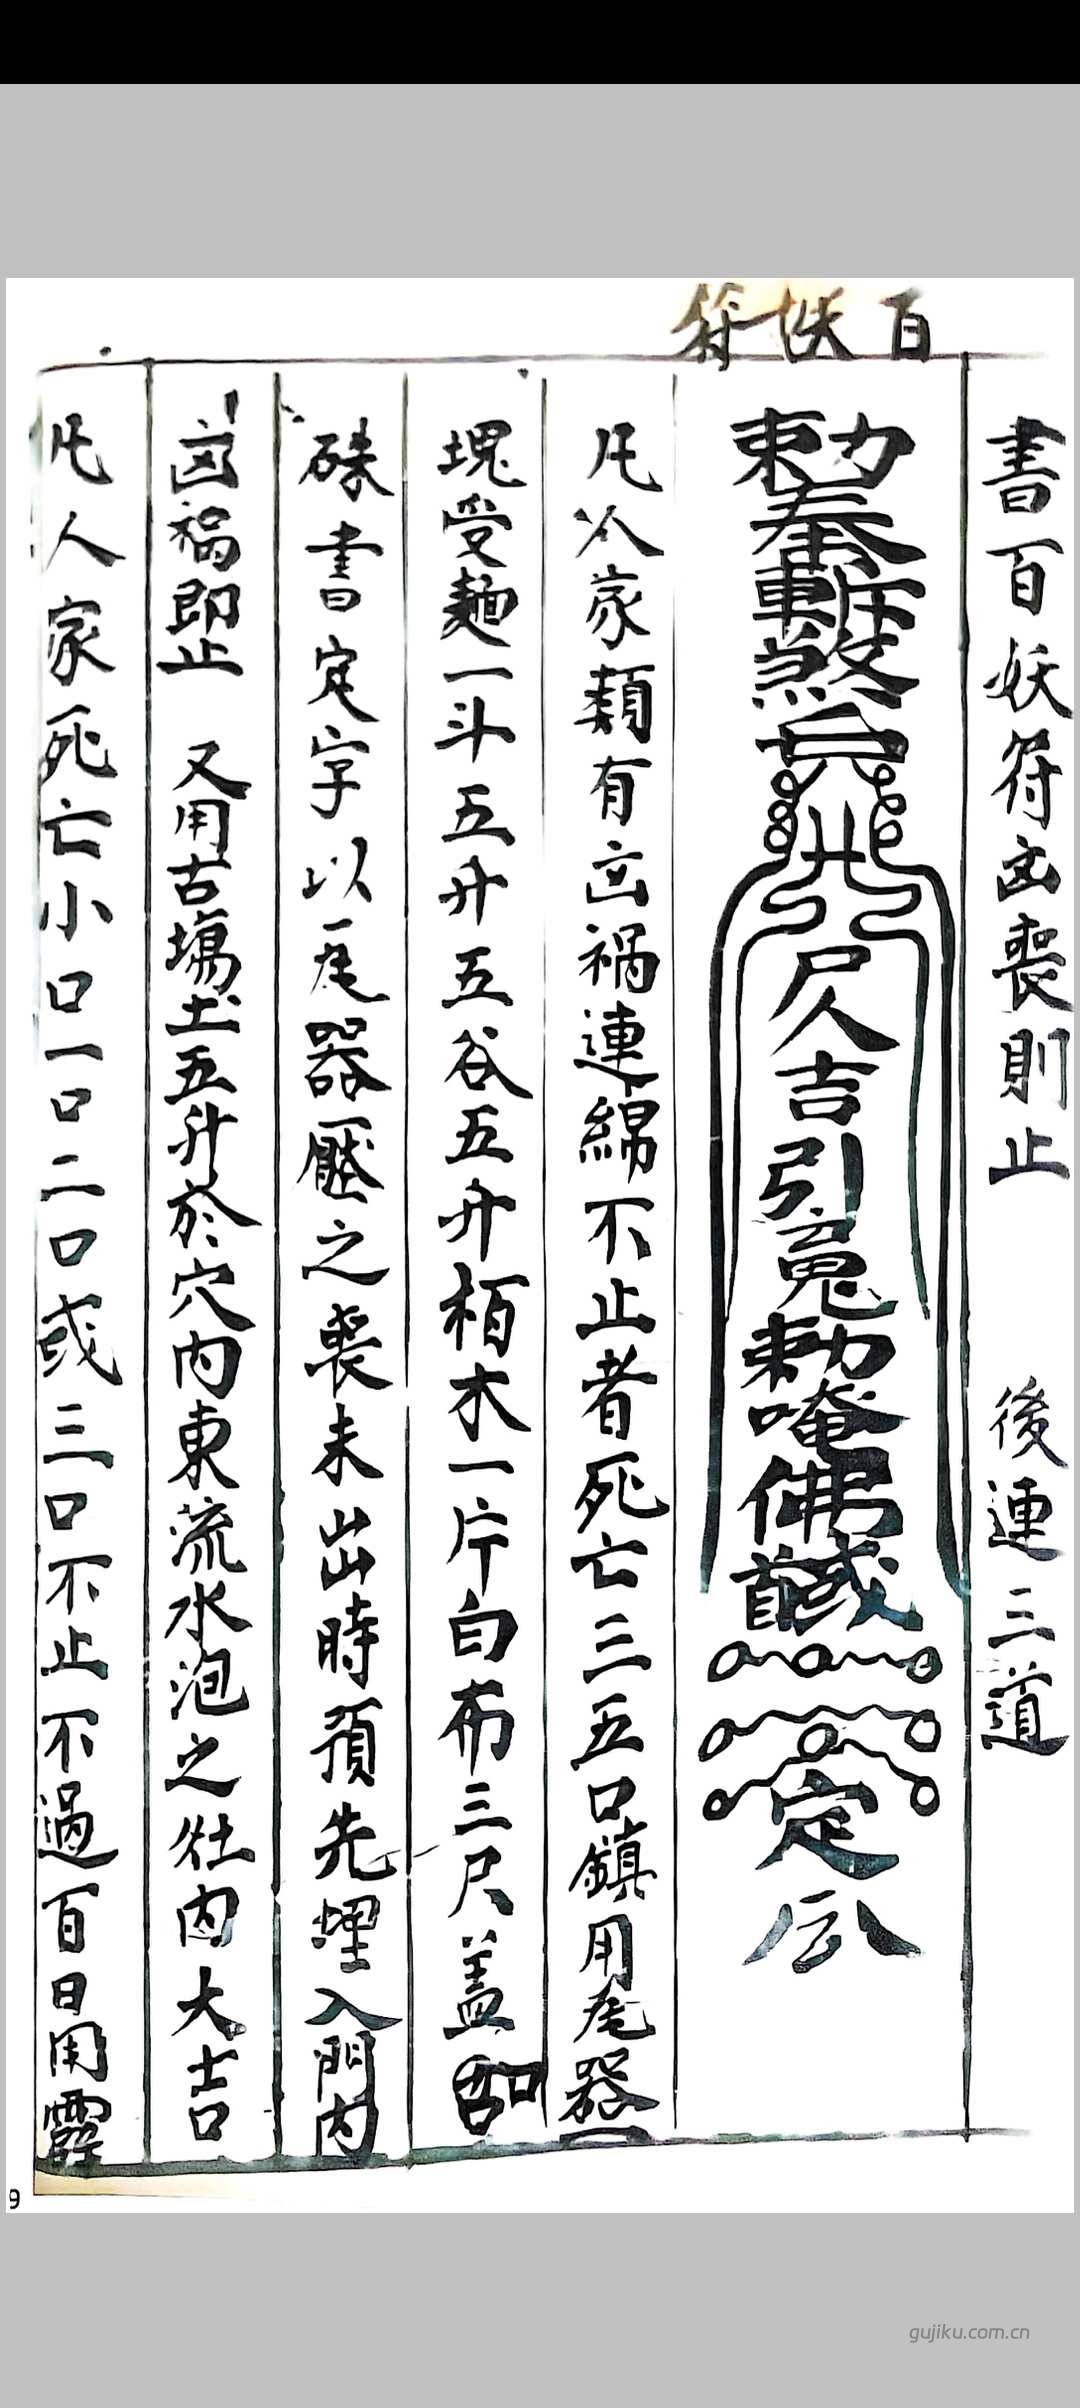 書百妖符凶喪則止 後連三道
百妖符
勅奉斬煞
尺人吉引魂勅唵佛
定
凡人家類有凶禍連綿不止者死亡三五口鎮用瓦器一
塊受麺一斗五升五谷五升栢木一片白布三尺盖
硃書定字以瓦器壓之喪未出時預先埋入門内
凶禍即止 又用古塲土五升於穴内東流水泡之灶内大吉
凡人家死亡小口一口二口或三口不止不過百日用霹
9
gujiku.com.cn